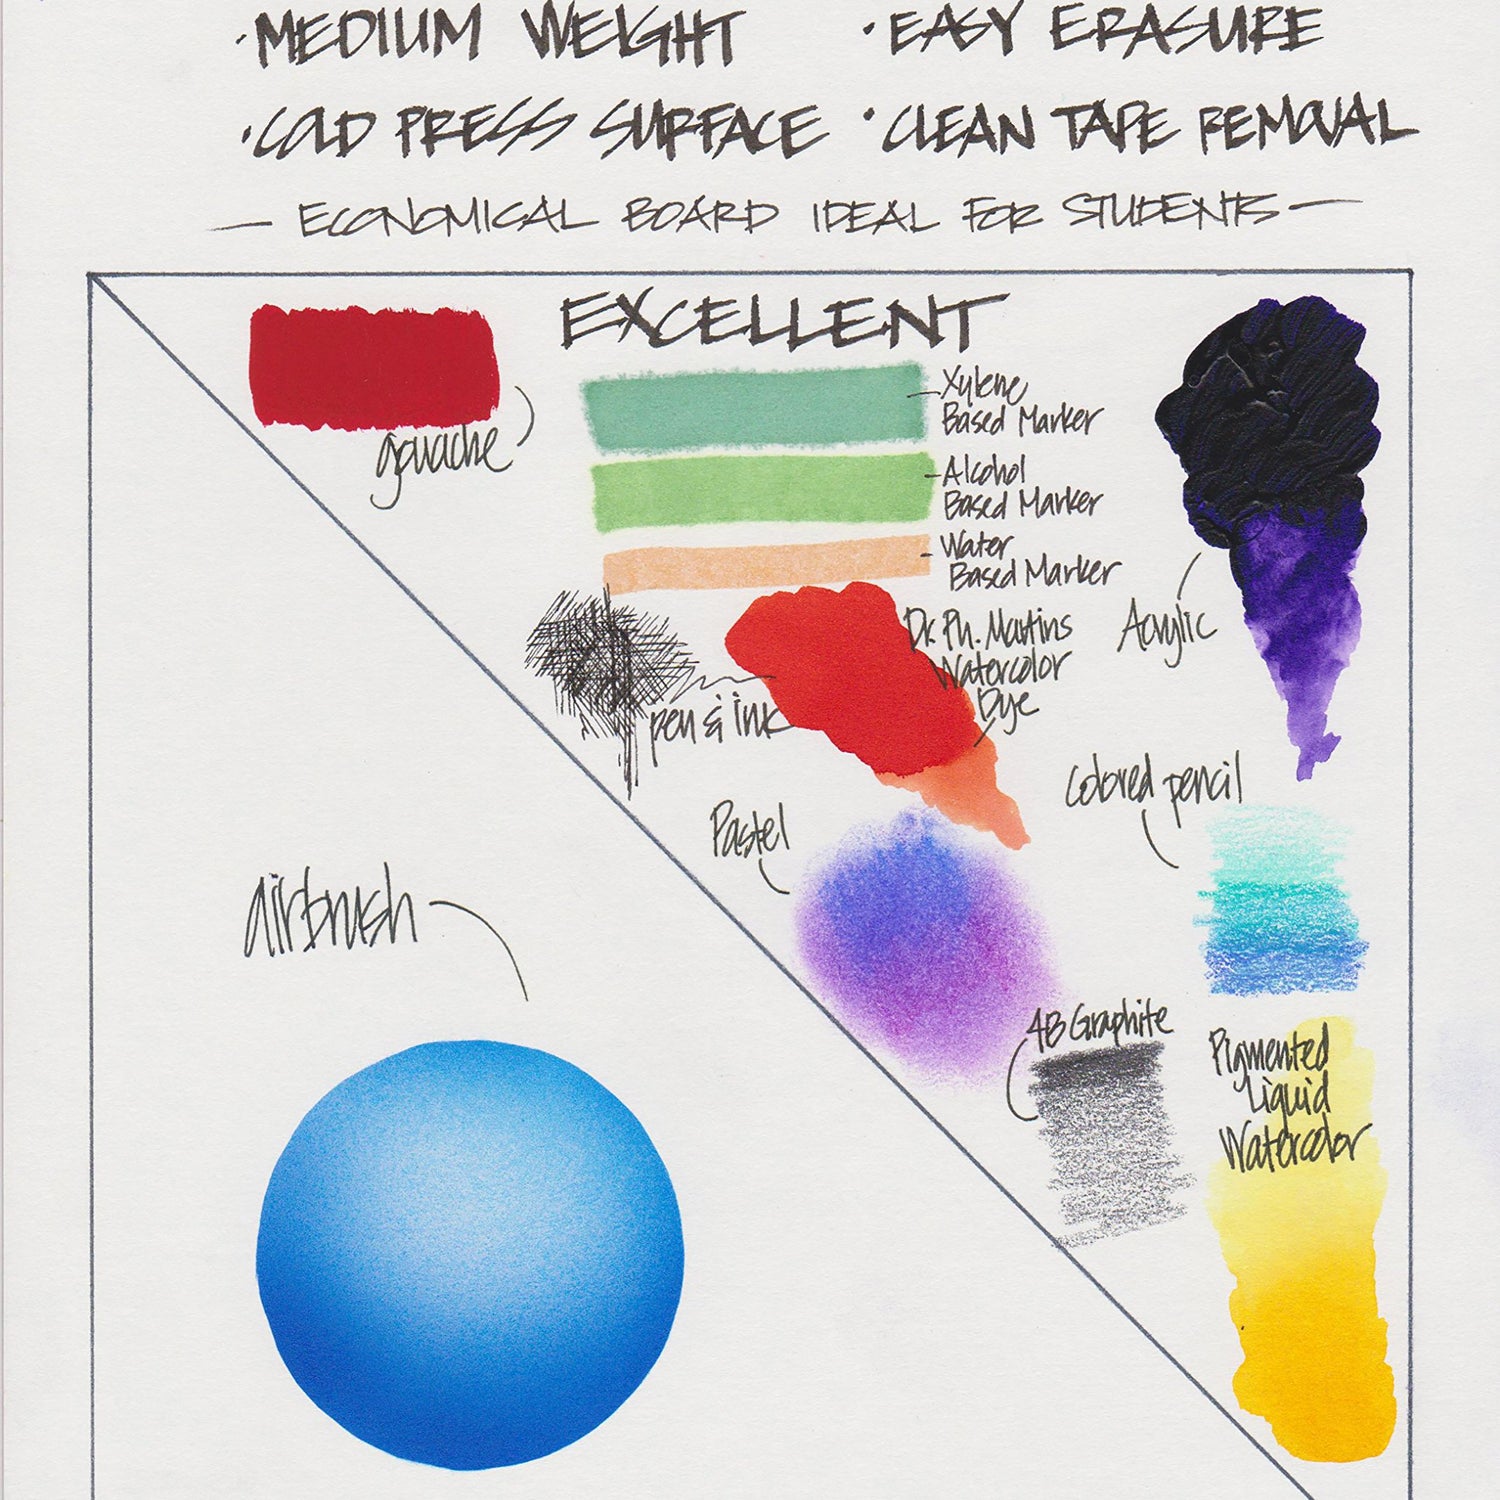 ·MEDIUM WEIGHT ·EASY ERASURE
·COLD PRESS SURFACE ·CLEAN TAPE REMOVAL
— ECONOMICAL BOARD IDEAL FOR STUDENTS —
EXCELLENT
gouache
Xylene
Based Marker
Alcohol
Based Marker
Water
Based Marker
Acrylic
Dr. Ph. Martins
Watercolor
Dye
pen & ink
Colored pencil
Pastel
airbrush
4B Graphite
Pigmented
Liquid
Watercolor